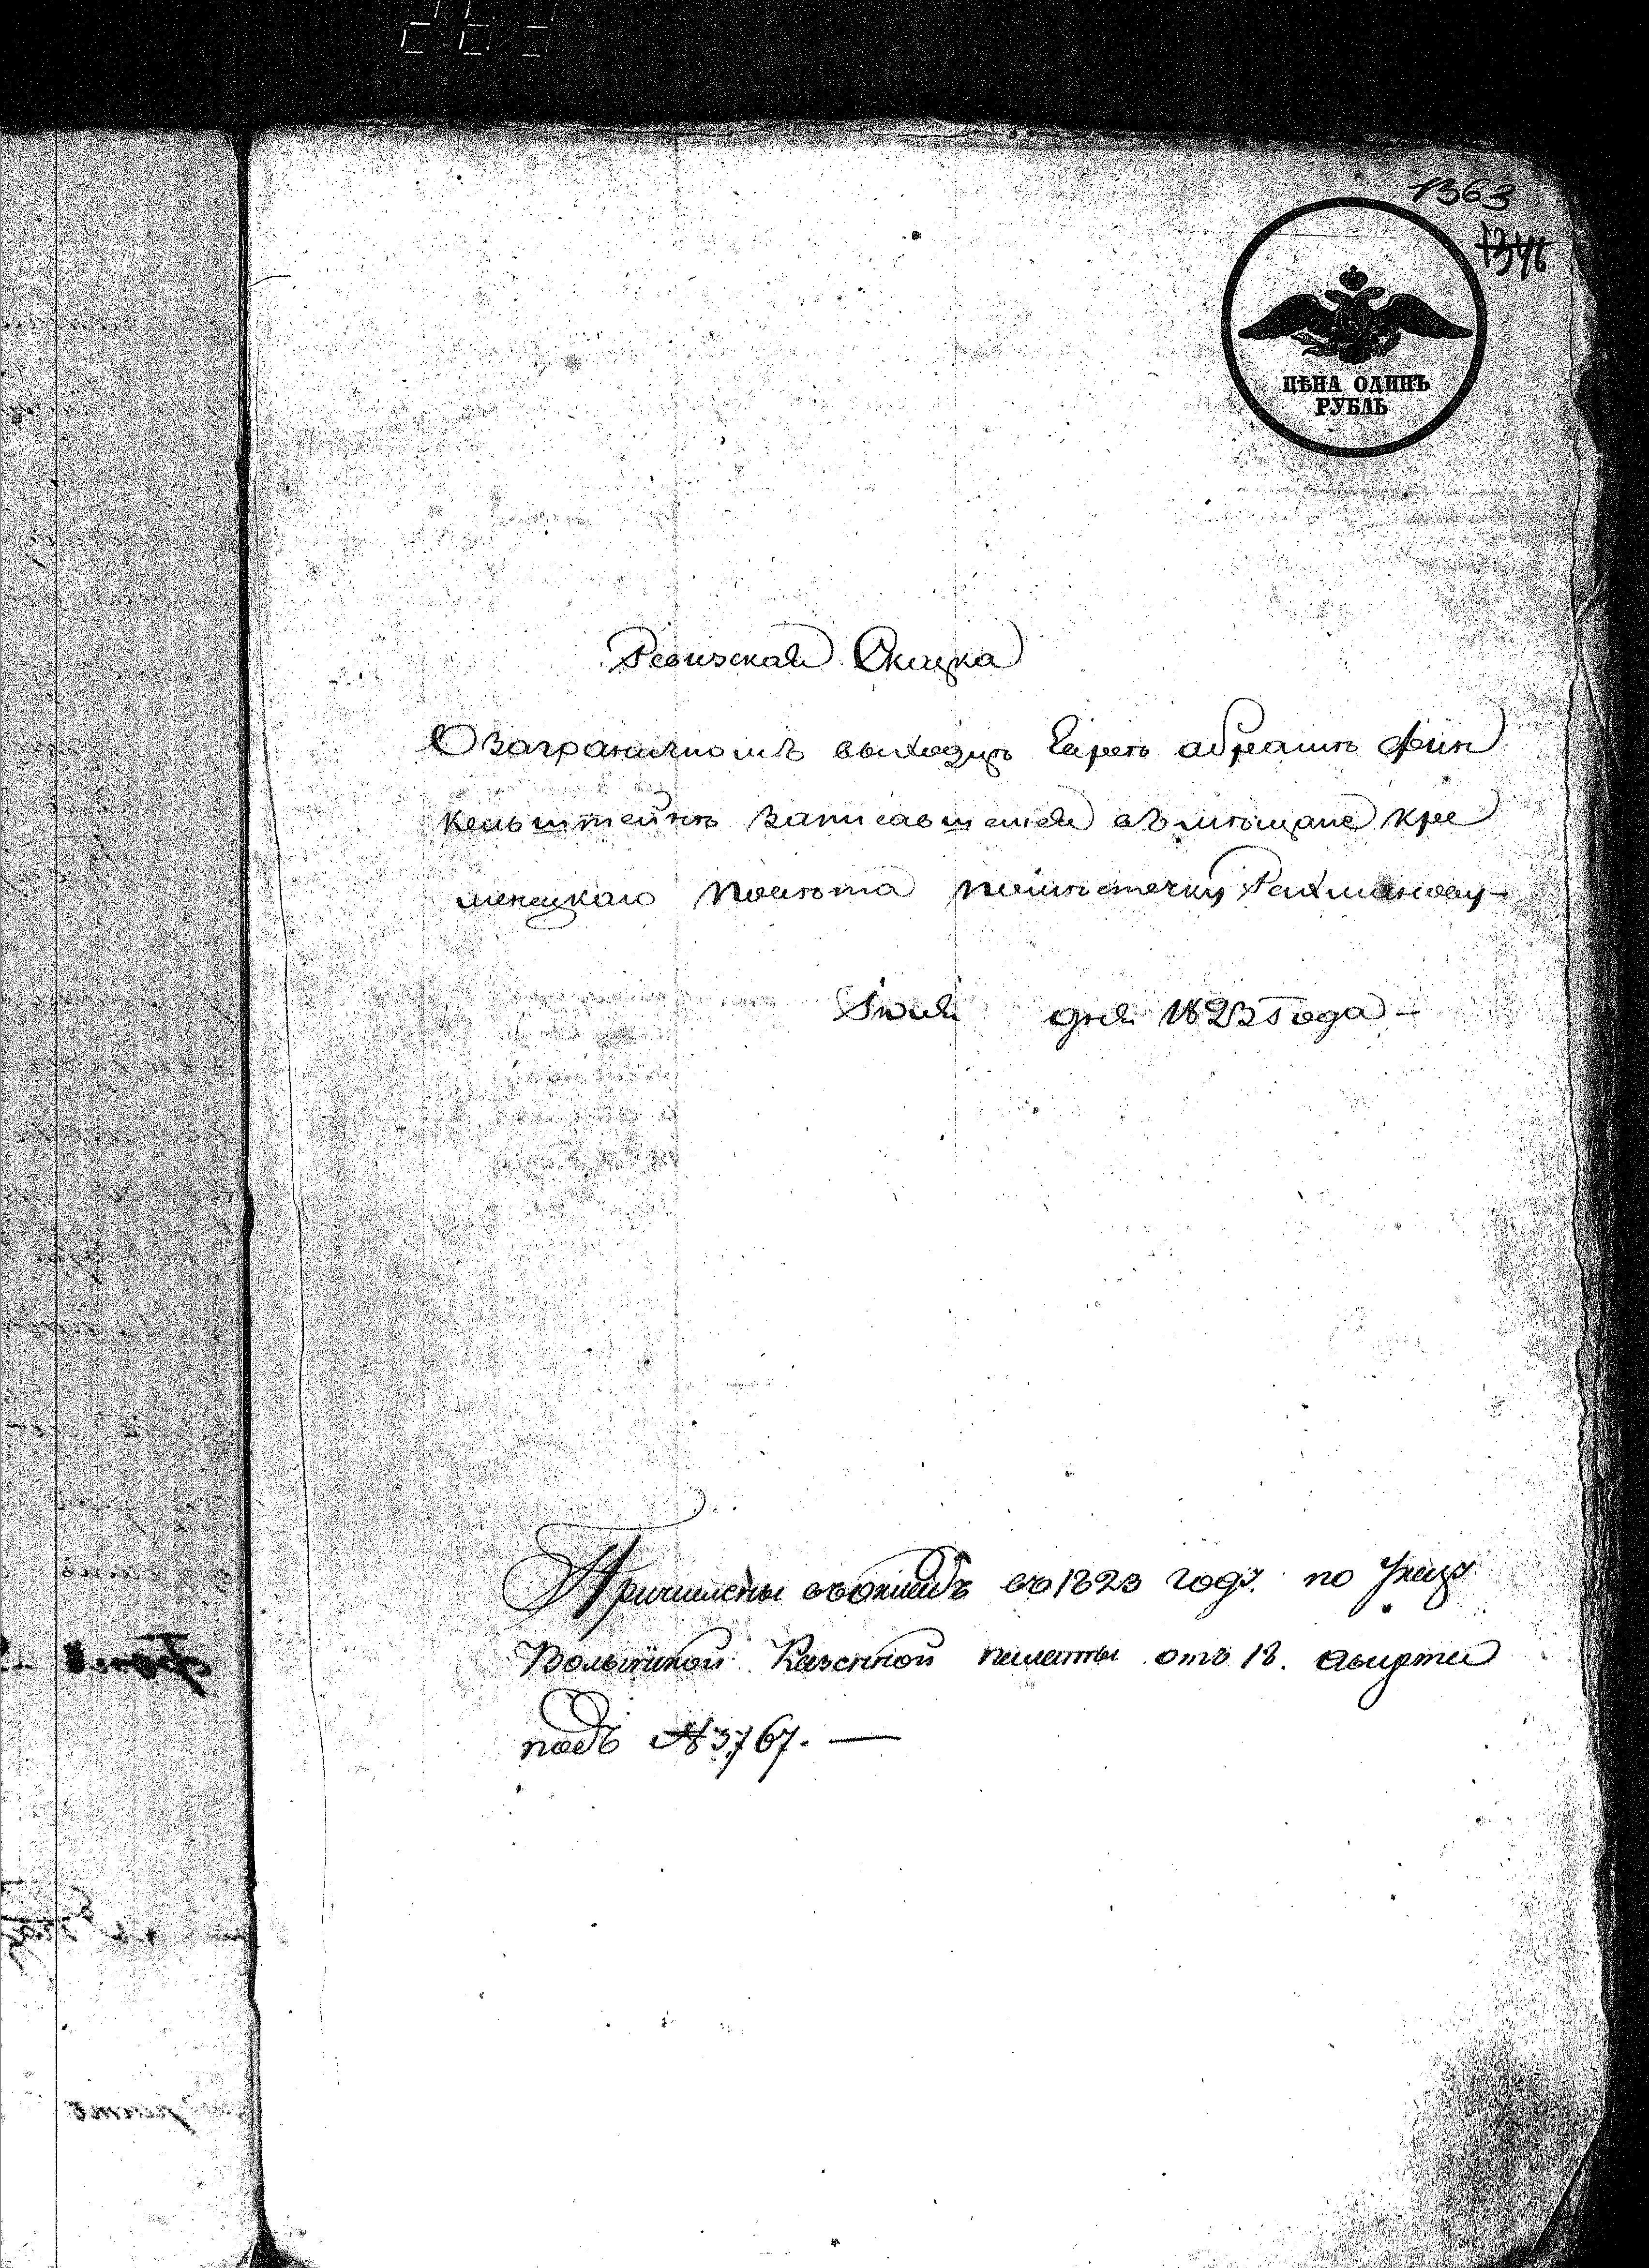 1363
1346
ЦѢНА ОДИНЪ
РУБЛЬ
Ревизская Скаска
О заграничномъ выходцѣ Евреѣ абрамѣ фин
кельштейнѣ записавшемся въ мѣщане кре
менецкаго повѣта по мѣстечку Рахманову
Іюля дня 1823 Года
Причислены въ окладъ въ 1823 году по Указу
Волынской Казенной палаты отъ 18. августа
подъ № 3767.